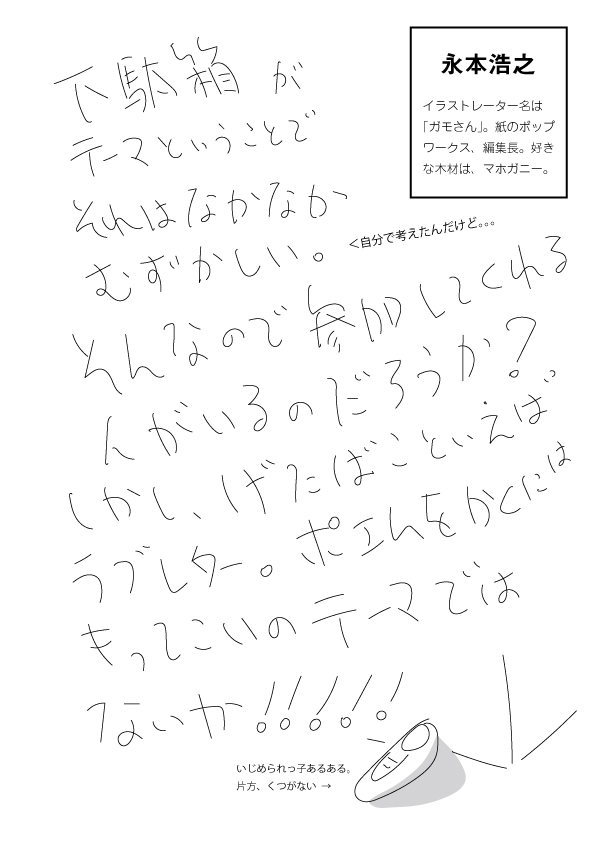 永本浩之
イラストレーター名は
「ガモさん」。紙のポップ
ワークス、編集長。好き
な木材は、マホガニー。
下駄箱が
テーマということで
それはなかなか
むずかしい。
<自分で考えたんだけど。。。
そんなので参加してくれる
んがいるのだろうか？
しかし、げたばこといえば、
ラブレター。ポエムをかくには
もってこいのテーマでは
ないか！！！！！
いじめられっ子あるある。
片方、くつがない →